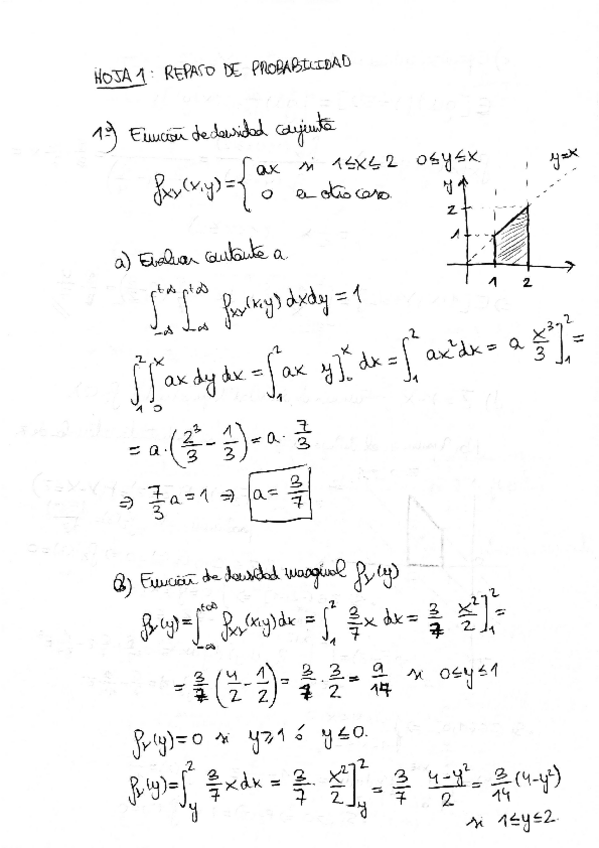 HOJA 1: REPASO DE PROBABILIDAD
1º) Función de densidad conjunta
f_XY(x,y) = { ax si 1≤x≤2 0≤y≤x
0 en otro caso
y=x
y
2
1
1 2
a) Evaluar constante a
∫_{-∞}^{+∞} ∫_{-∞}^{+∞} f_XY(x,y) dxdy = 1
∫_1^2 ∫_0^x ax dy dx = ∫_1^2 ax y]_0^x dx = ∫_1^2 ax² dx = a x³/3 ]_1^2 =
= a·(2³/3 - 1/3) = a· 7/3
⇒ 7/3 a = 1 ⇒ a = 3/7
b) Función de densidad marginal f_Y(y)
f_Y(y) = ∫_{-∞}^{+∞} f_XY(x,y) dx = ∫_1^2 3/7 x dx = 3/7 x²/2 ]_1^2 =
= 3/7 (4/2 - 1/2) = 3/7 · 3/2 = 9/14 si 0≤y≤1
f_Y(y) = 0 si y≥1 ó y≤0.
f_Y(y) = ∫_y^2 3/7 x dx = 3/7 · x²/2 ]_y^2 = 3/7 4-y²/2 = 3/14 (4-y²)
si 1≤y≤2.